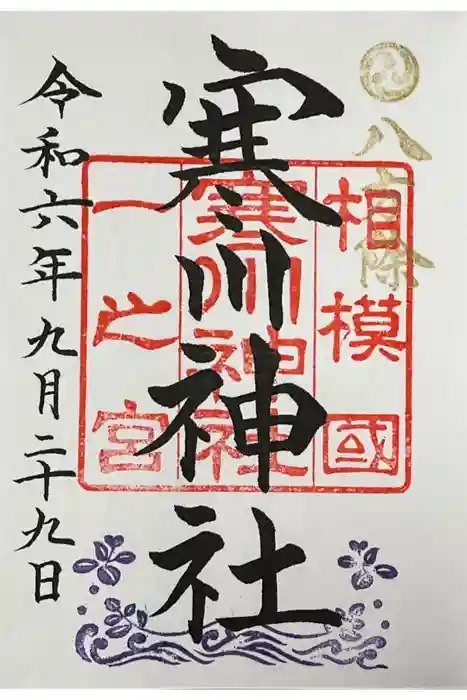 八方除
相模國
寒川神社
寒川神社
一之宮
令和六年九月二十九日